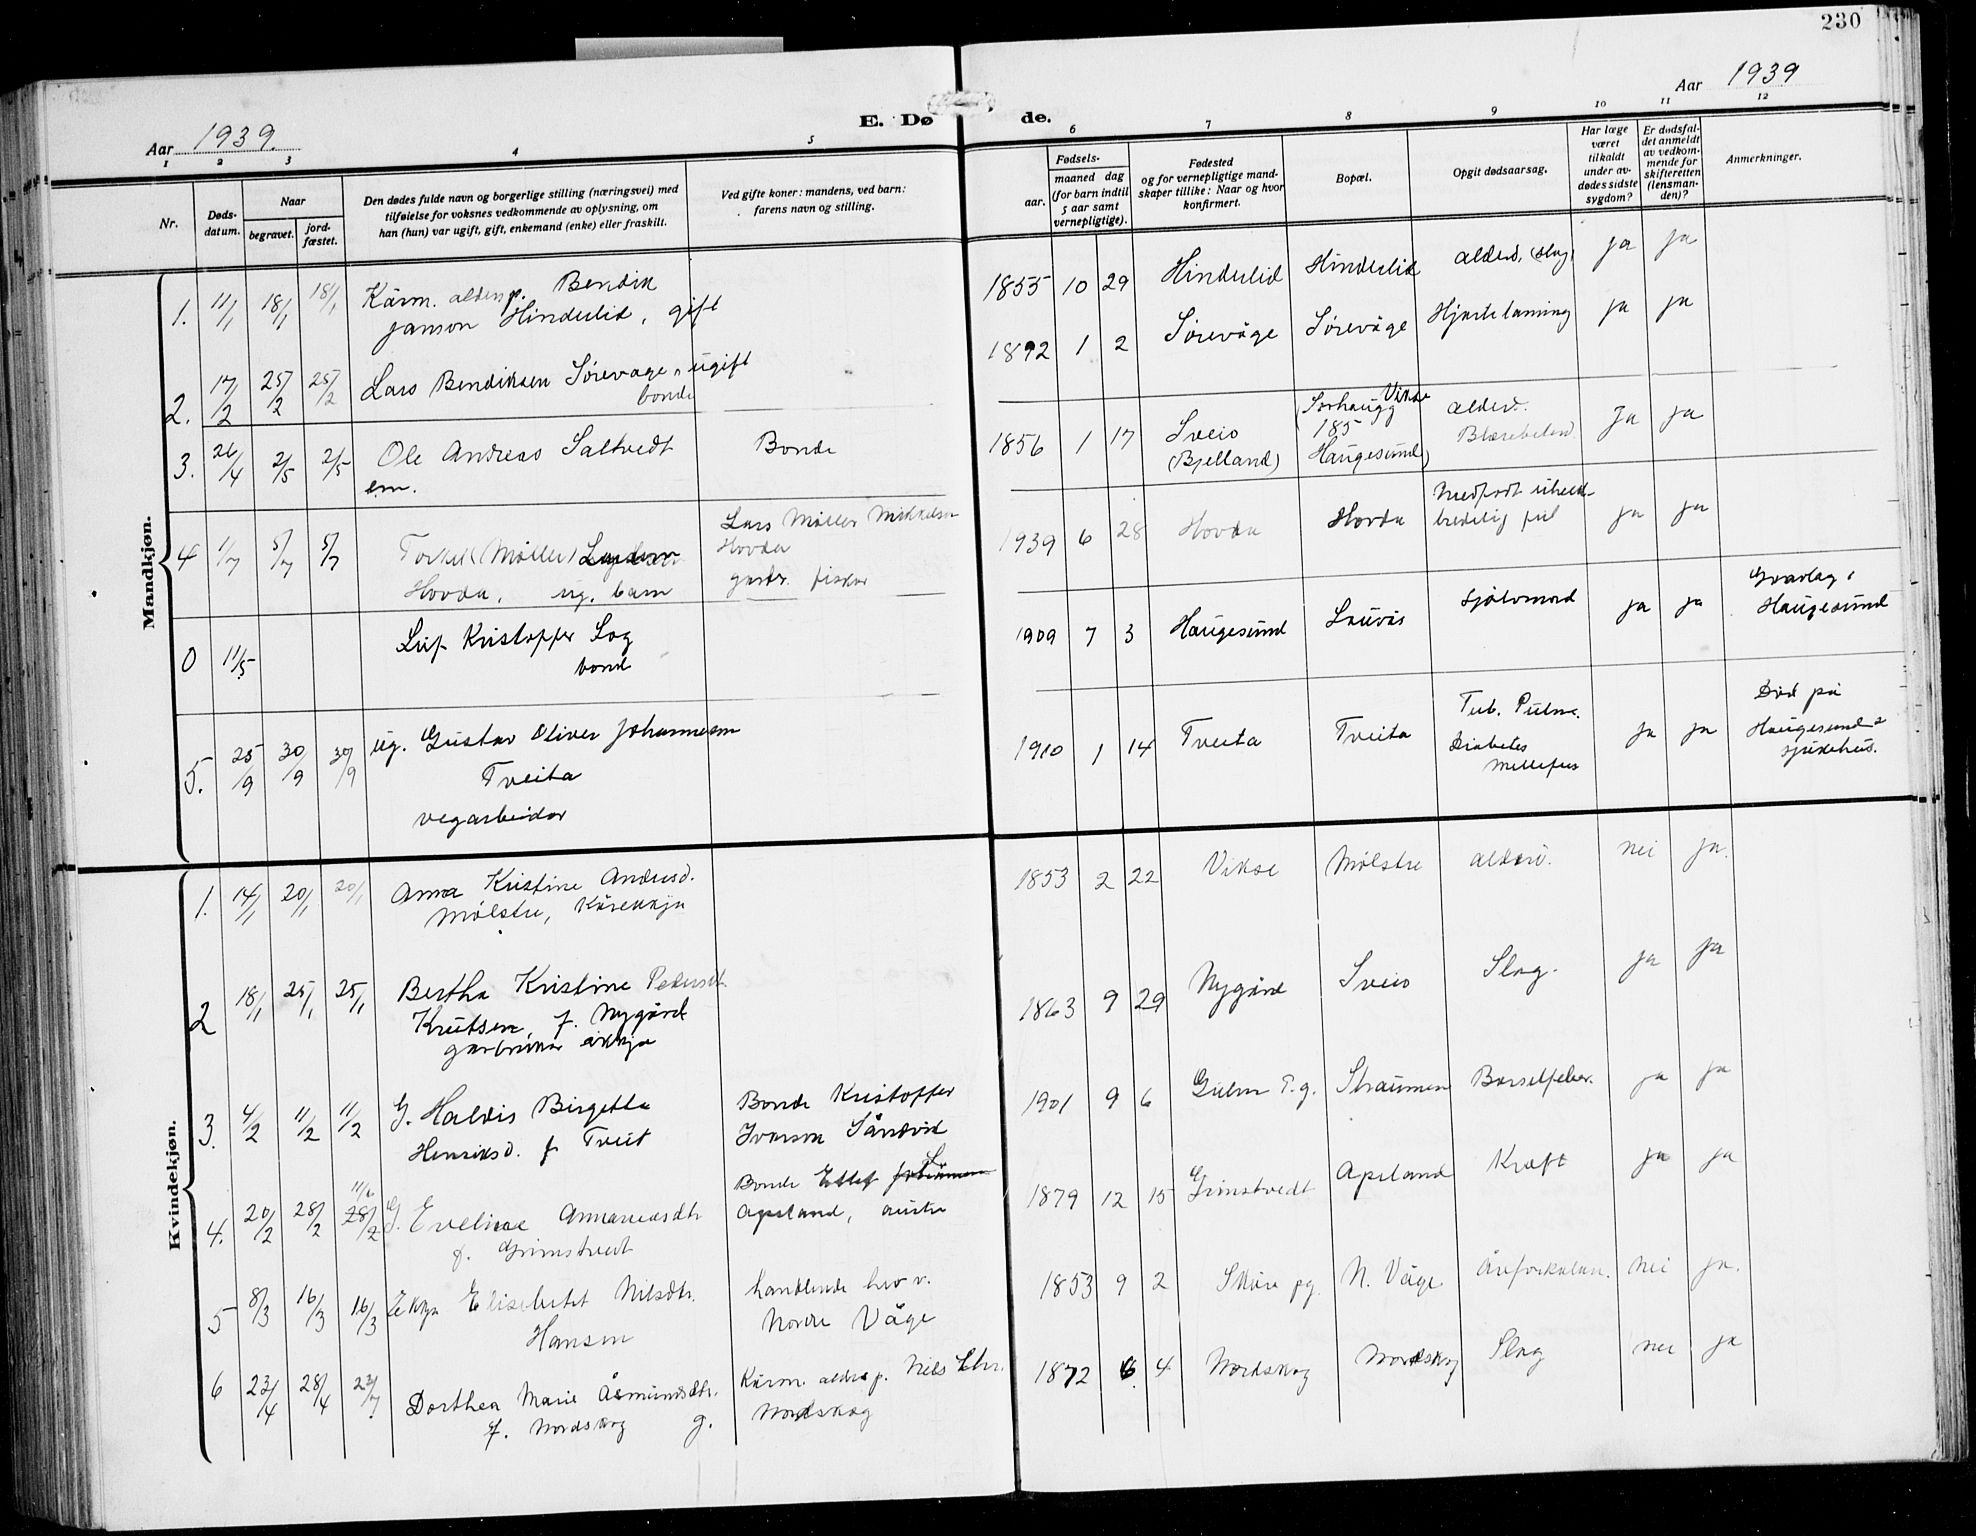 230
Aar 1939.
E. Døde.
Aar 1939
1 2 3 4 5 6 7 8 9 10 11 12
Nr.
Døds-
datum.
Naar
begravet.
jord-
fæstet.
Den dødes fulde navn og borgerlige stilling (næringsvei) med
tilføielse for voksnes vedkommende av oplysning, om
han (hun) var ugift, gift, enkemand (enke) eller fraskilt.
Ved gifte koner: mandens, ved barn:
farens navn og stilling.
Fødsels-
aar.
maaned dag
(for barn indtil
5 aar samt
vernepligtige).
Fødested
og for vernepligtige mand-
skaper tillike: Naar og hvor
konfirmert.
Bopæl.
Opgit dødsaarsag.
Har læge
været
tilkaldt
under av-
dødes sidste
sygdom?
Er dødsfal-
det anmeldt
av vedkom-
mende for
skifteretten
(lensman-
den)?
Anmerkninger.
Mandkjøn.
1. 11/1 18/1 18/1 Kårm. aldersp. Bendik
Janson Hinderlid, gift
1855 10 29 Hinderlid Hinderlid alderd. (slag) ja ja
2. 17/2 25/2 25/2 Lars Bendiksen Sørevåge, ugift
bonde
1892 1 2 Sørevåge Sørevåge Hjertelaming ja ja
3. 26/4 2/5 2/5 Ole Andreas Saltvedt
em.
Bonde
1856 1 17 Sveio
(Bjelland)
(Sørhaugg
185
Haugesund)
Vikse
alderd.
Ja ja
4 1/7 5/7 5/7 Torkel (Møller)
Hovda, ug. barn
Lars Møller Mikkelsen
Hovda
gardbr. fiskar
1939 6 28 Hovda Hovda Medfødt
ja ja
0 11/5 Leif Kristoffer Log
bonde
1909 7 3 Haugesund Lauvås Sjølvmord ja ja Gravlag i
Haugesund
5. 25/9 30/9 30/9 ug. Gustav Oliver Johannesen
Tveita
vegarbeidar
1910 1 14 Tveita Tveita Tub. Pulm.
Diabetes
Mellitus
ja ja Død på
Haugesunds
sjukehus.
Kvindekjøn.
1. 14/1 20/1 20/1 Anna Kristine Andersd.
Mølstre, Kårekkja
1853 2 22 Vikse Mølstre alderd. nei ja.
2 18/1 25/1 25/1 Bertha Kristine Pedersdt.
Knutsen, f. Nygård
gardbrukar ekkja
1863 9 29 Nygård Sveio Slag. ja ja
3. 4/2 11/2 11/2 G. Haldis Birgette
Henriksd. f. Tveit
Bonde Kristoffer
Ivarson Sandvik
1901 9 6 Gulen p.g. Straumen Barselfeber. ja ja
4. 20/2 28/2 28/2 G. Eveline Annaniasdtr
f. Grimstvedt
Bonde Ellef
Apeland, austre
1879 12 15 Grimstvedt Apeland Kræft ja ja
5 8/3 16/3 16/3 Ekkja Elisebetet Nilsdtr.
Hansen
handlende
Nordre Våge
1853 9 2 Skåre pg. N. Våge Åreforkalkn. nei ja.
6 23/4 28/4 Dorthea Marie Åsmundsdtr.
f. Nordskog g.
Kårm. aldersp. Nils Chr.
Nordskog
1872 6 4 Nordskog Nordskog Slag nei ja